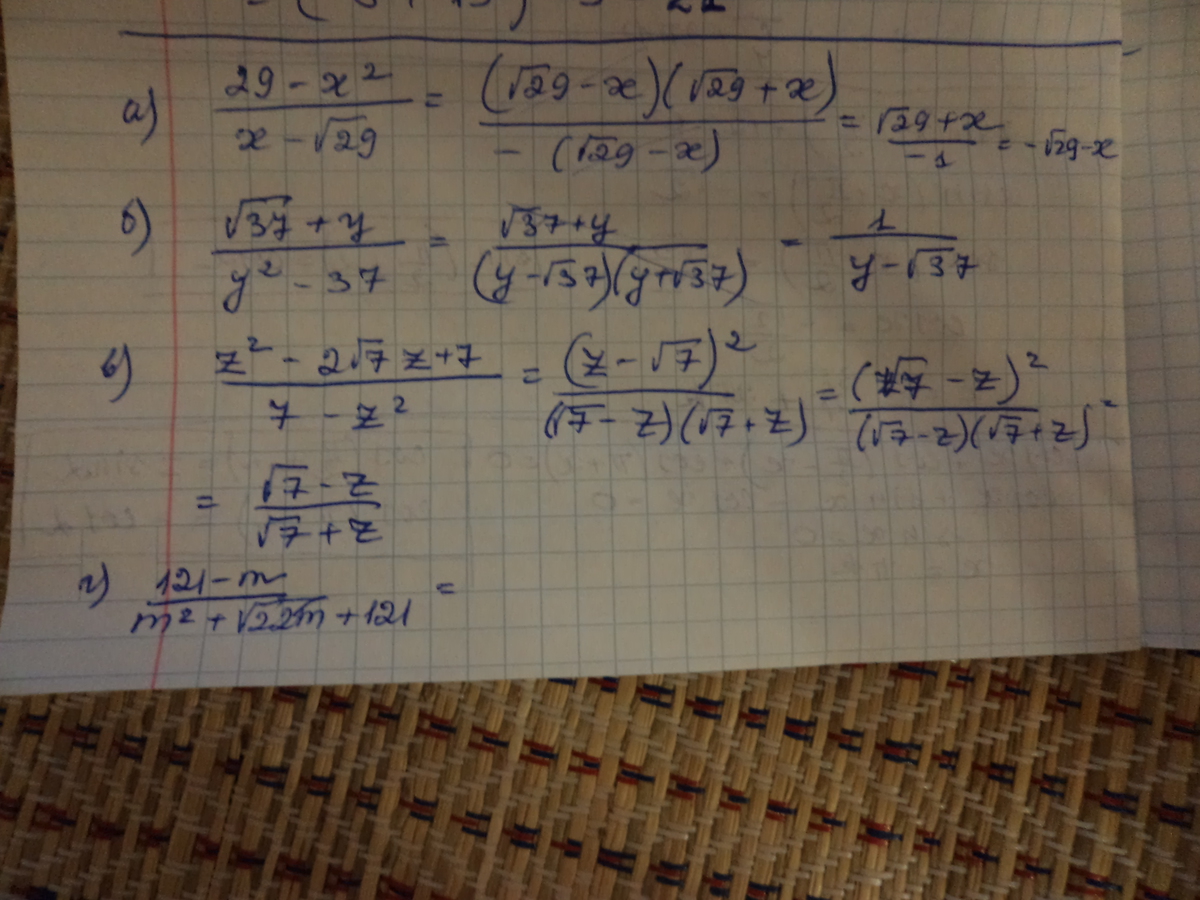 а) (29 - x²)/(x - √29) = ((√29 - x)(√29 + x))/(- (√29 - x)) = (√29 + x)/(-1) = -√29 - x
б) (√37 + y)/(y² - 37) = (√37 + y)/((y - √37)(y + √37)) = 1/(y - √37)
в) (z² - 2√7 z + 7)/(7 - z²) = (z - √7)²/((√7 - z)(√7 + z)) = (√7 - z)²/((√7 - z)(√7 + z)) =
= (√7 - z)/(√7 + z)
г) (121 - m)/(m² + √22m + 121) =